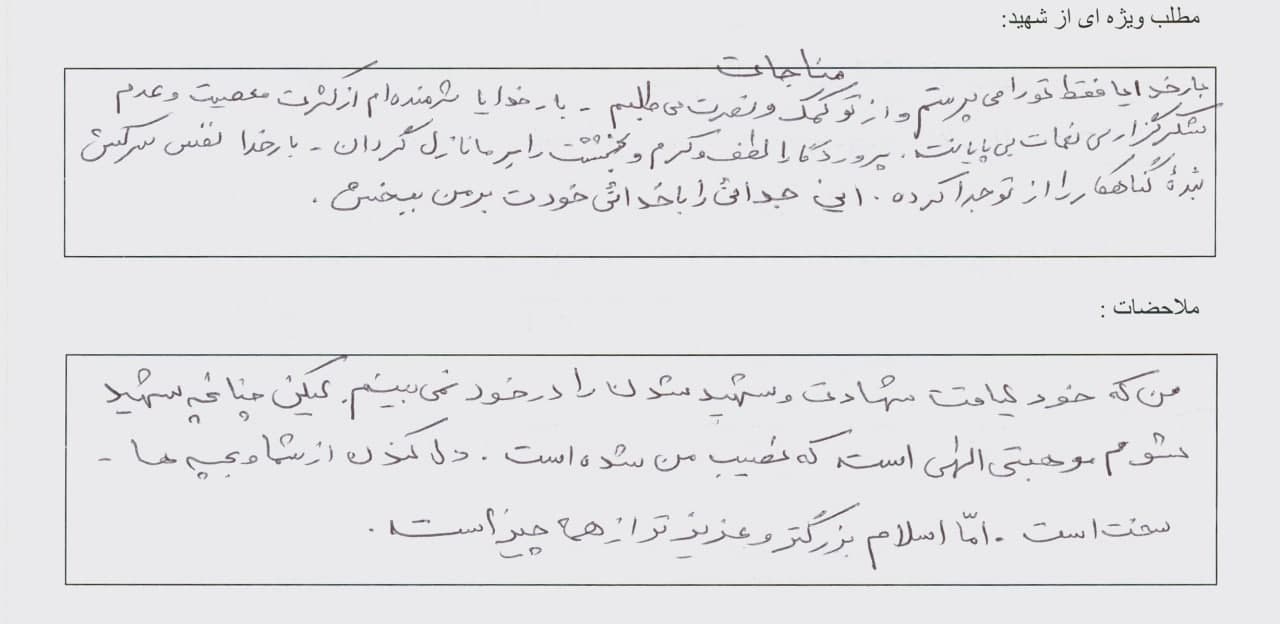 مطلب ویژه ای از شهید:
مناجات
بارخدایا فقط تو را می پرستم و از تو کمک و نصرت می طلبم - بارخدایا شرمنده ام از کثرت معصیت و عدم
شکرگزاری نعمات بی پایانت. پروردگارا لطف و کرم و بخششت را بر ما نازل گردان - بارخدا نفس سرکش
بندۀ گناهکار را از تو جدا کرده . این جدائی را با خدائی خودت بر من ببخش .
ملاحضات :
من که خود لیاقت شهادت و شهید شدن را در خود نمی بینم. لیکن چنانچه شهید
شوم موهبتی الهی است که نصیب من شده است . دل کندن از شما و بچه ها -
سخت است . امّا اسلام بزرگتر و عزیزتر از همه چیز است .